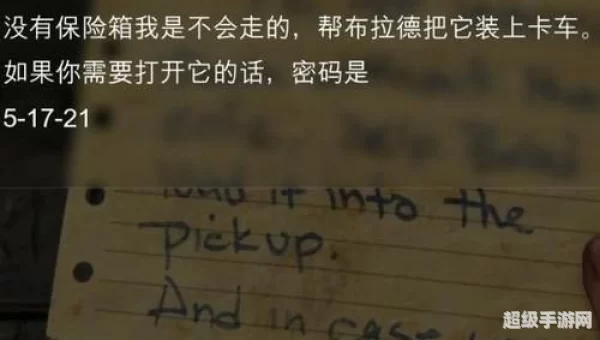 没有保险箱我是不会走的，帮布拉德把它装上卡车。
如果你需要打开它的话，密码是
5-17-21
load it into the
Pickup.
And in case
超级手游网